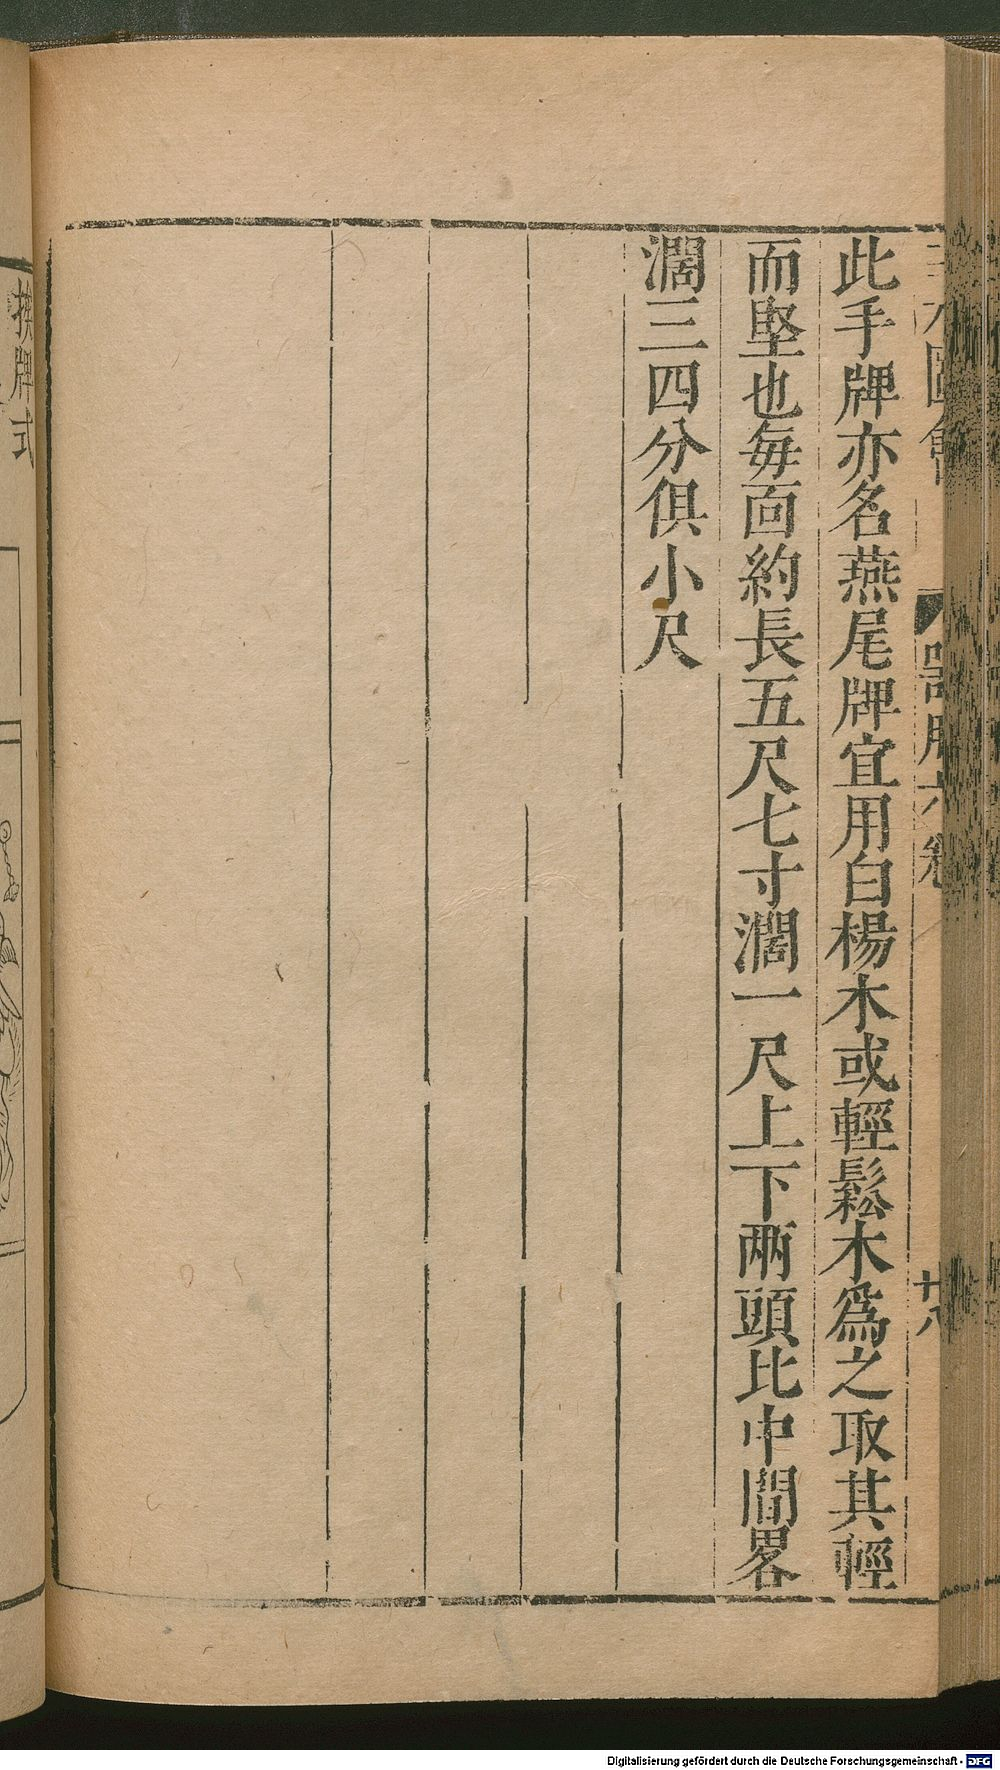 圖會 器用六卷 廿八
此手牌亦名燕尾牌宜用白楊木或輕鬆木爲之取其輕
而堅也每面約長五尺七寸濶一尺上下兩頭比中間畧
濶三四分俱小尺
挨牌式
Digitalisierung gefördert durch die Deutsche Forschungsgemeinschaft - DFG